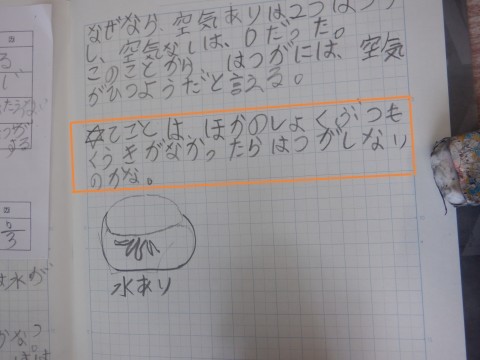 なぜなら、空気ありは2つはつが
し、空気なしは、0だった。
このことから、はつがには、空気
がひつようだと言える。
てことは、ほかのしょくぶつも
くうきがなかったらはつがしない
のかな。
水あり
3
5/3
は水が